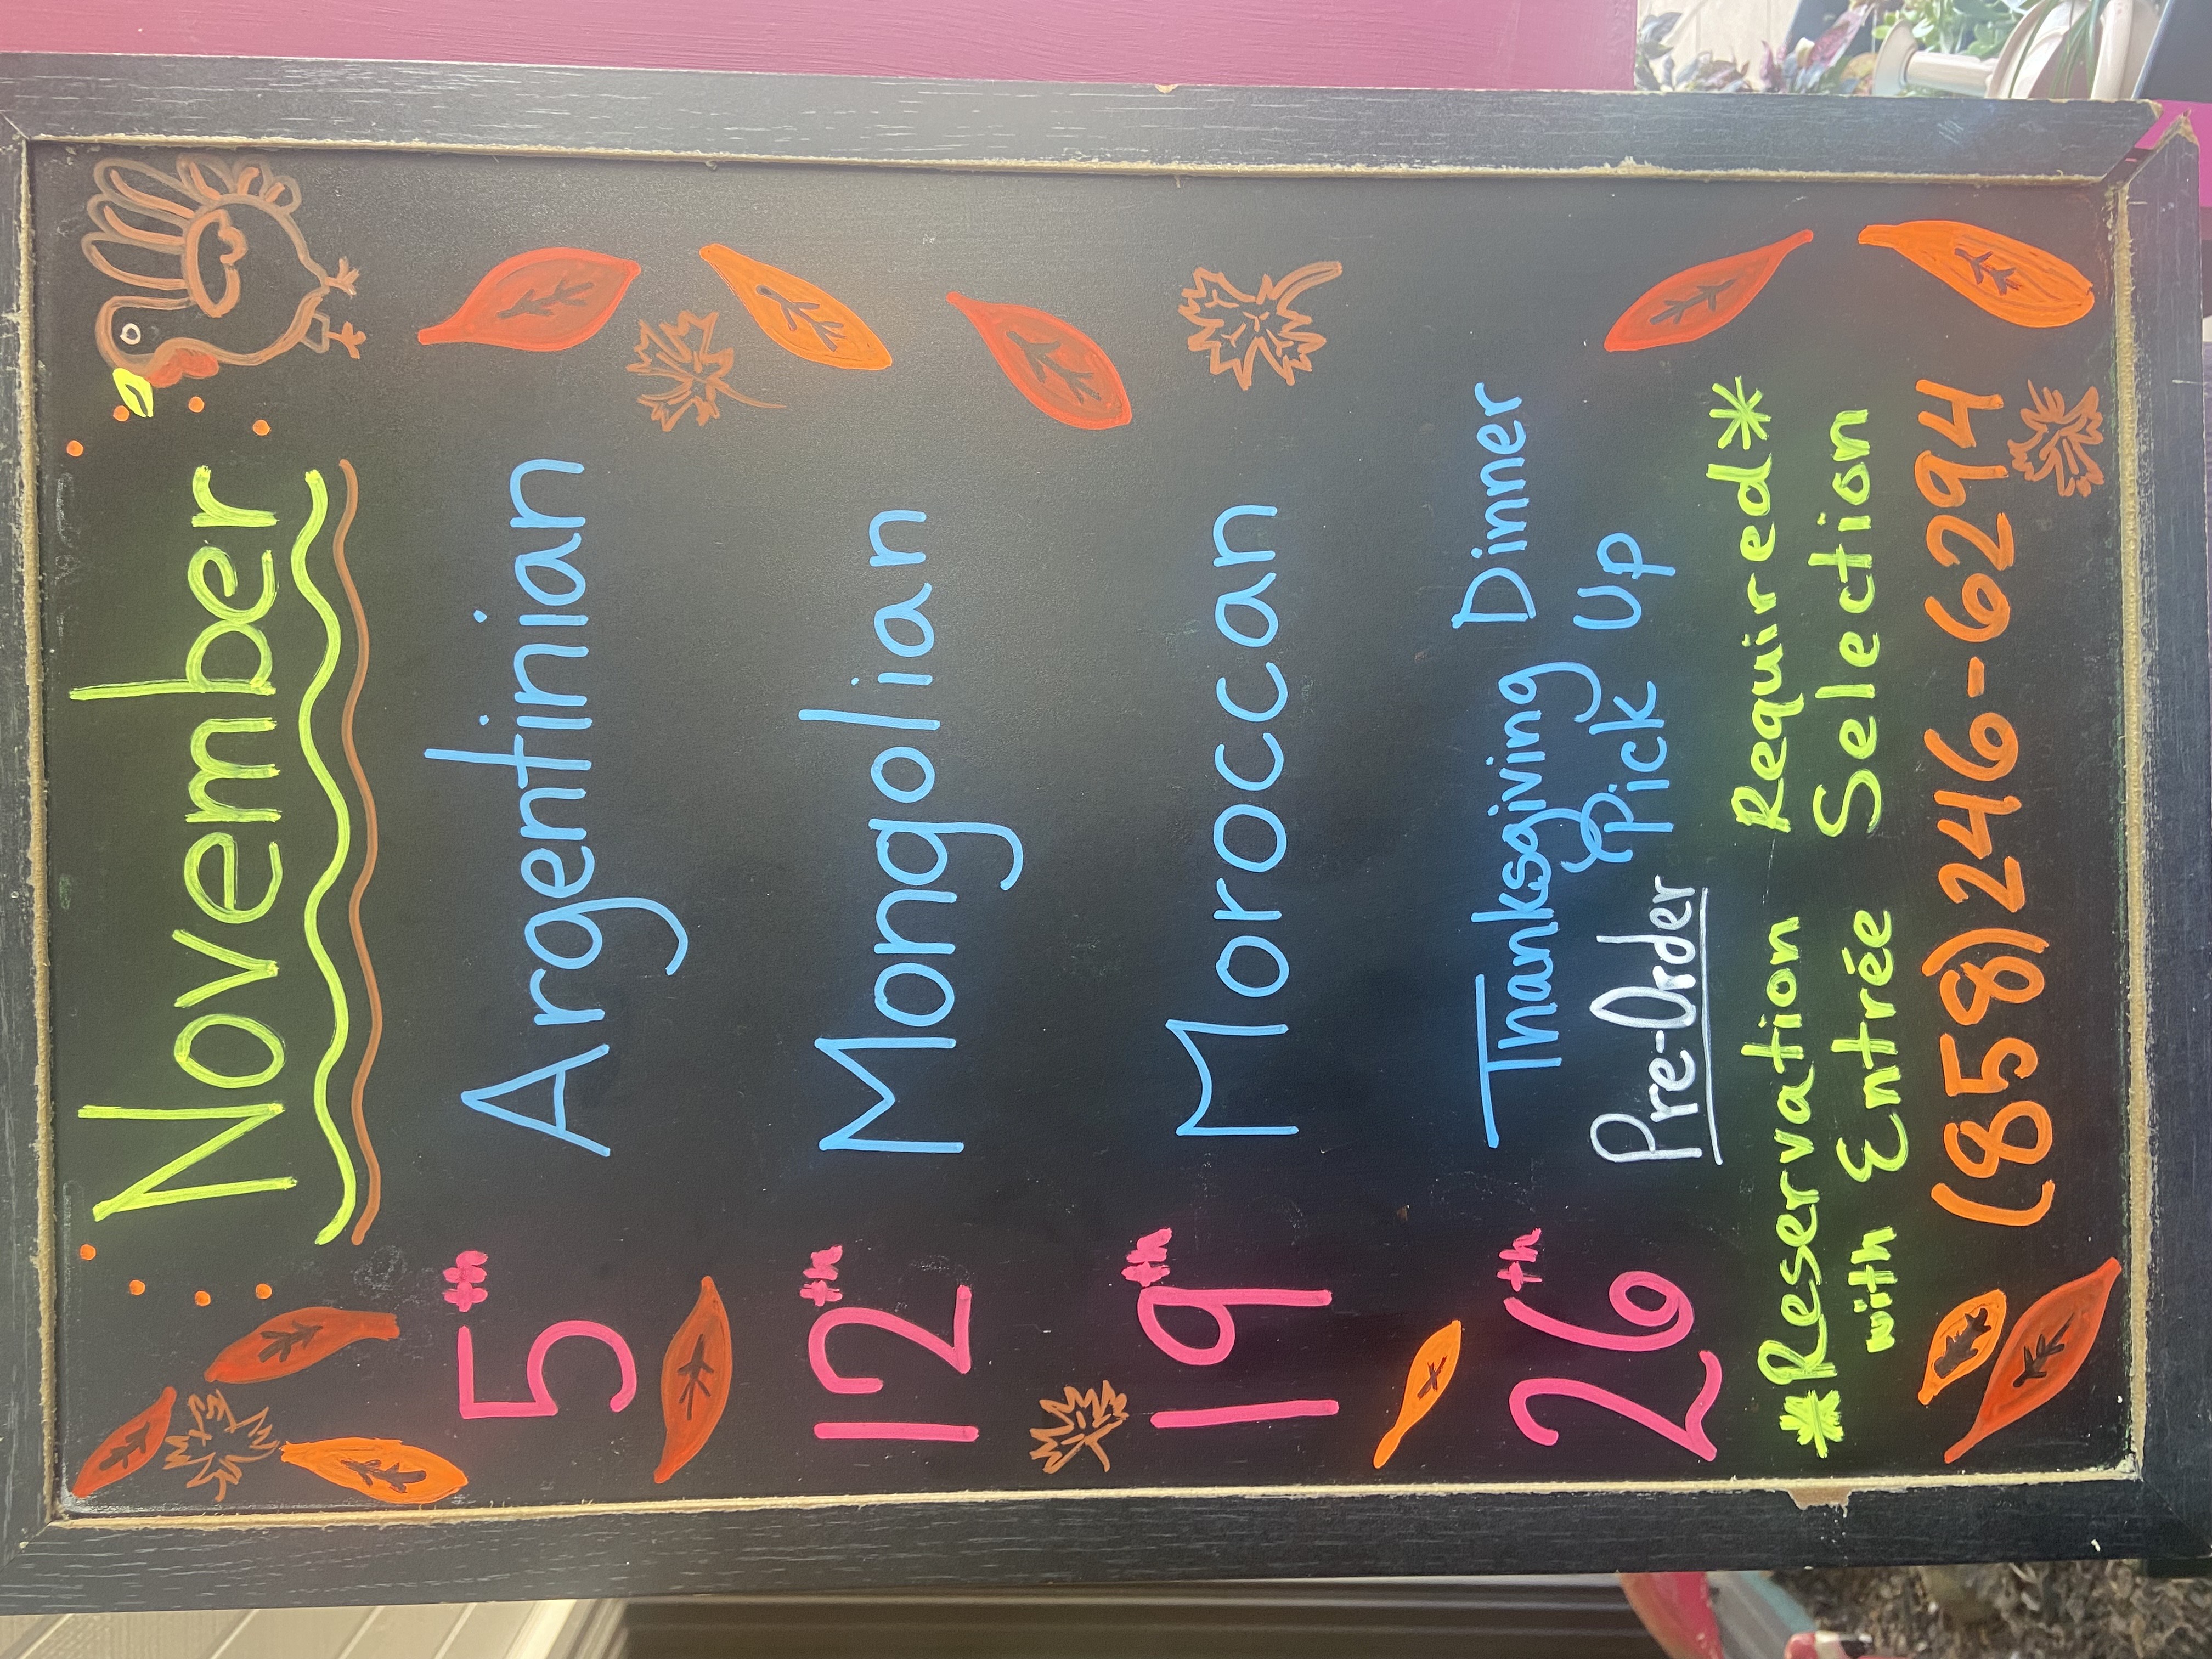 November
5th Argentinian
12th Mongolian
19th Moroccan
26th Thanksgiving Dinner
Pre-Order & Pick Up
*Reservation Required*
with Entrée Selection
(858)246-6294